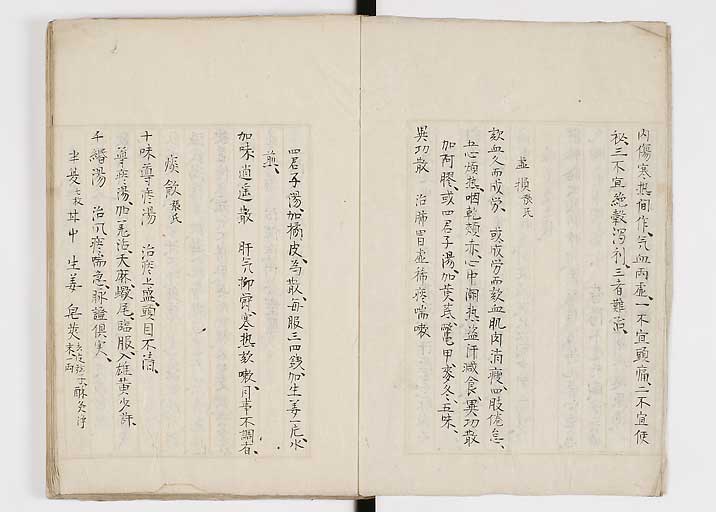 内傷寒热間作、气血兩虛、一不宜頭痛、二不宜便
秘、三不宜絶穀瀉利、三者難治、
虛損 張氏
欬血久而成勞、或成労而欬血肌肉消瘦、四肢倦怠、
五心煩热、咽乾頰赤、心中潮热、盗汗减食、異功散
加阿膠、或四君子湯、加黄芪、鱉甲、麥冬、五味、
異功散 治肺胃虛稀痰喘嗽
四君子湯、加橘皮、為散、毎服三四錢、加生姜一片、水
煎、
加味逍遥散 肝气抑欝、寒热欬嗽、月事不調者、
痰飲 張氏
十味導痰湯 治痰上盛、頭目不清、
導痰湯、加羌活、天麻、蝎尾、臨服、入雄黄少許、
千緡湯 治風痰喘急、脉證俱実、
半夏七枚 甘中 生姜 皂莢